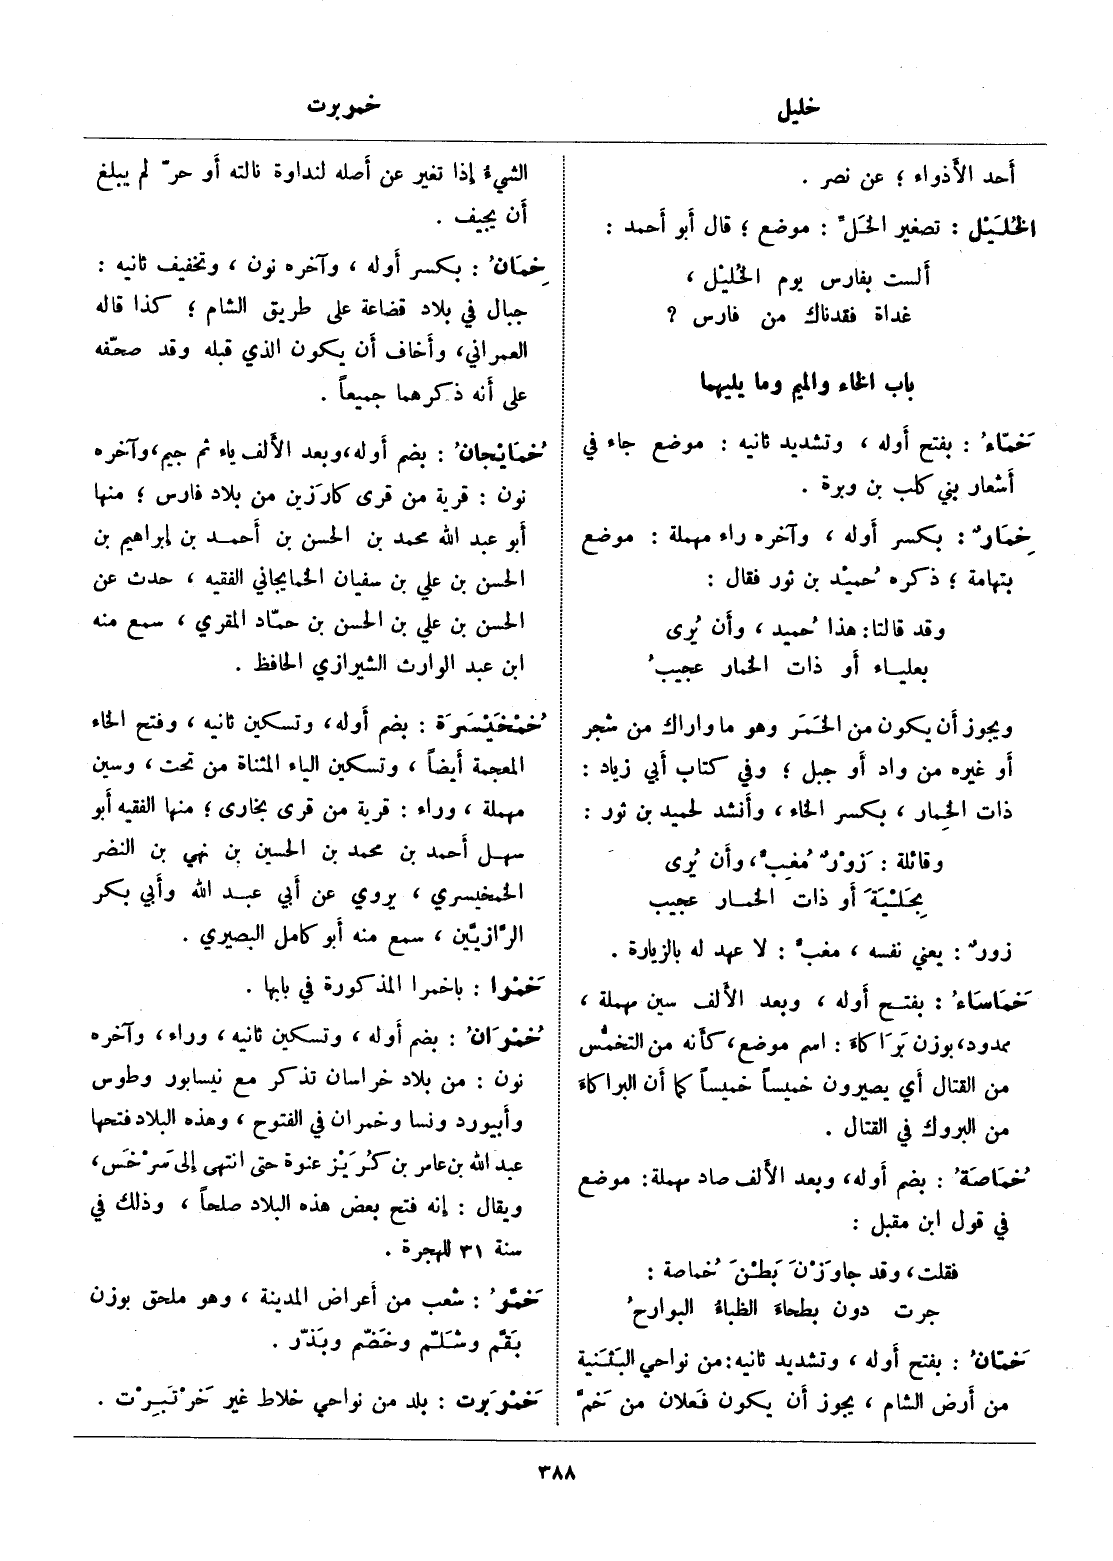 خليل
خمربرت
أحد الأذواء ؛ عن نصر .
الخُلَيْل : تصغير الخَلّ : موضع ؛ قال أبو أحمد :
ألست بفارس يوم الخُليْل ،
غداة فقدناك من فارس ؟
باب الخاء والميم وما يليهما
خَمّاء : بفتح أوله ، وتشديد ثانيه : موضع جاء في
أشعار بني كلب بن وبرة .
خِمَارٌ : بكسر أوله ، وآخره راء مهملة : موضع
بتهامة ؛ ذكره حُميْد بن ثور فقال :
وقد قالتا : هذا حُميد ، وأن يُرى
بعلياء أو ذات الخمار عجيبُ
ويجوز أن يكون من الخَمَر وهو ما واراك من شجر
أو غيره من واد أو جبل ؛ وفي كتاب أبي زياد :
ذات الخِمار ، بكسر الخاء ، وأنشد لحميد بن ثور :
وقائلة : زَوْرٌ مُغِبٌّ ، وأن يُرى
بِحَلْيَةَ أو ذات الخمار عجيب
زورٌ : يعني نفسه ، مغبٌّ : لا عهد له بالزيارة .
خَمَاسَاءُ : بفتح أوله ، وبعد الألف سين مهملة ،
ممدود ، بوزن بَرَاكاءَ : اسم موضع ، كأنه من التخمُّس
من القتال أي يصيرون خميساً خميساً كما أن البراكاء
من البروك في القتال .
خُمَاصَةُ : بضم أوله ، وبعد الألف صاد مهملة : موضع
في قول ابن مقبل :
فقلت ، وقد جاوَزْنَ بَطْنَ خُماصة :
جرت دون بطحاء الظباءُ البوارحُ
خَمّانُ : بفتح أوله ، وتشديد ثانيه : من نواحي البَثَنية
من أرض الشام ، يجوز أن يكون فَعلان من خَمَّ
الشيءُ إذا تغير عن أصله لنداوة نالته أو حرّ لم يبلغ
أن يجيف .
خِمَانُ : بكسر أوله ، وآخره نون ، وتخفيف ثانيه :
جبال في بلاد قضاعة على طريق الشام ؛ كذا قاله
العمراني ، وأخاف أن يكون الذي قبله وقد صحّفه
على أنه ذكرهما جميعاً .
خُمَايْجَانُ : بضم أوله ، وبعد الألف ياء ثم جيم ، وآخره
نون : قرية من قرى كارَزين من بلاد فارس ؛ منها
أبو عبد الله محمد بن الحسن بن أحمد بن إبراهيم بن
الحسن بن علي بن سفيان الخمايجاني الفقيه ، حدث عن
الحسن بن علي بن الحسن بن حمّاد المقري ، سمع منه
ابن عبد الوارث الشيرازي الحافظ .
خُمْخَيْسَرَة : بضم أوله ، وتسكين ثانيه ، وفتح الخاء
المعجمة أيضاً ، وتسكين الياء المثناة من تحت ، وسين
مهملة ، وراء : قرية من قرى بخارى ؛ منها الفقيه أبو
سهل أحمد بن محمد بن الحسين بن نهي بن النضر
الخمخيسري ، يروي عن أبي عبد الله وأبي بكر
الرّازيّين ، سمع منه أبو كامل البصيري .
خَمْرا : باخمرا المذكورة في بابها .
خُمْرَانُ : بضم أوله ، وتسكين ثانيه ، وراء ، وآخره
نون : من بلاد خراسان تذكر مع نيسابور وطوس
وأبيورد ونسا وخمران في الفتوح ، وهذه البلاد فتحها
عبد الله بن عامر بن كُرَيْز عنوة حتى انتهى إلى سَرْخَس ،
ويقال : إنه فتح بعض هذه البلاد صلحاً ، وذلك في
سنة ٣١ للهجرة .
خَمَّرُ : شعب من أعراض المدينة ، وهو ملحق بوزن
بَقَّم وشَلَّم وخَضَّم وبَذَّر .
خَمْرَبرت : بلد من نواحي خلاط غير خَرْتَبِرْت .
٣٨٨